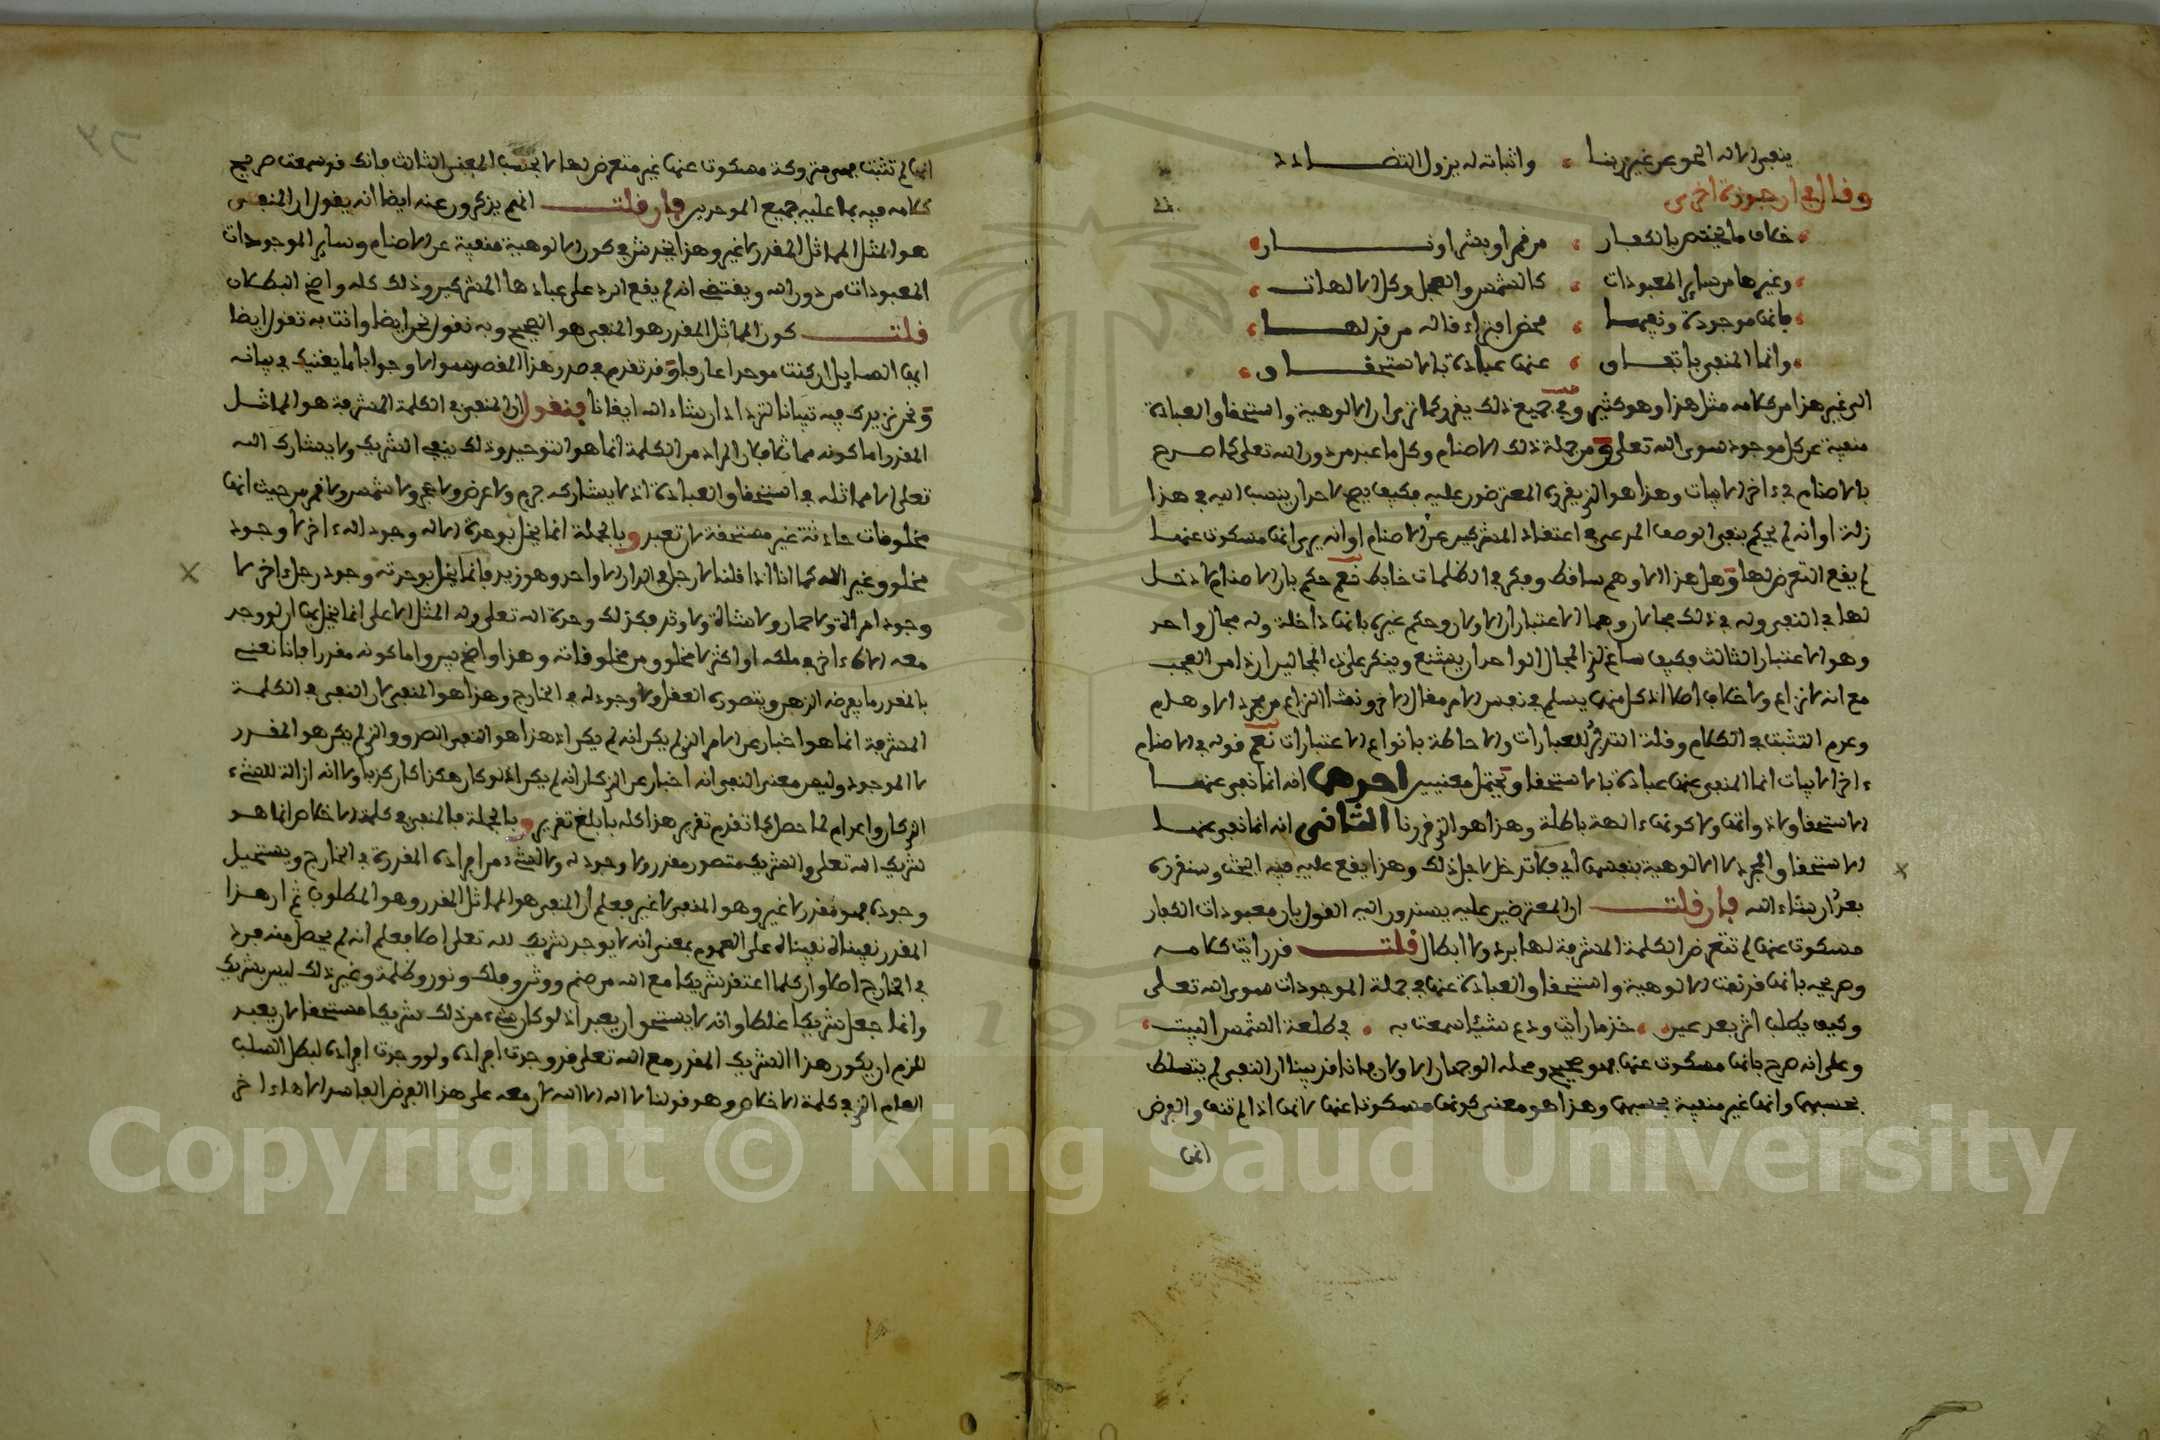 ينفى الاله الحق عن غير ربنا واثباته له يزول التضادد
وقال في ارجوزة اخرى
خلاف ما يختص بالكفار من قمر او بشر او نار
وغيرها من ساير المعبودات كالشمس والعجل وكل الالهات
بانها موجودة ونفيها محض افتراء قاله من قد لها
وانما المنفي باتفاق عنها عبادة بالاستحقاق
الى غير هذا من كلامه مثل هذا وهو كثير وفي جميع ذلك يقرر كما ترى ان الالوهية واستحقاق العبادة
منفية عن كل موجود سوى الله تعلى ومن جملة ذلك الاصنام وكل ما عبد من دون الله تعلى كما صرح
بالاصنام في ءاخر الابيات وهذا هو الذي يقرره المعترضون عليه فكيف يصح لاحد ان ينسب اليه في هذا
زلة او انه لم يحكم بنفي الوصف المدعى في اعتقاد المشركين عن الاصنام او انه يرى انها مسكوت عنها
لم يقع التعرض لها وهل هذا الا وهم ساقط وفكر في الظلمات خابط نعم حكم بان الاصنام لا دخل
لها في النفي وله في ذلك مجالان وهما الاعتباران الاولان وحكم غيره بانها داخلة وله مجال واحد
وهو الاعتبار الثالث فكيف ساغ لذي المجال الواحد ان يشنع وينكر على ذي المجالين ان ذا من العجب
مع انه لا نزاع ولا خلاف اصلا اذ كل منهما يسلم في نفس الامر مقال الاخر ومنشا النزاع مجرد الاوهام
وعدم التثبت في الكلام وقلة التدبر للعبارات والاحاطة بانواع الاعتبارات نعم قوله في الاصنام
ءاخر الابيات انما المنفي عنها عبادة بالاستحقاق يحتمل معنيين احدهما انه انما نفي عنها
الاستحقاق لا ذواتها ولا كونها ءالهة باطلة وهذا هو الذي قررنا الثاني انه انما نفي عنها
الاستحقاق المجرد لا الالوهية بنفسها اي فلا تدخل لاجل ذلك وهذا يقع عليه فيه البحث وسنقرره
بعد ان شاء الله فان قلت ان المعترضين عليه يسندون اليه القول بان معبودات الكفار
مسكوت عنها لم تتعرض الكلمة المشرفة لها برد ولا ابطال قلت قد رايت كلامه
وصريحه بانها قد نفت الالوهية واستحقاق العبادة عنها في جملة الموجودات سوى الله تعلى
وكيف يطلب اثر بعد عين خذ ما رايت ودع شيئا سمعت به في طلعة الشمس البيت
وعلى انه صرح بانها مسكوت عنها فهو صحيح ومحله الوجهان الاولان لانا قد بينا ان النفي لم يتسلط
بحسبهما وانها غير منفية بحسبهما وهذا هو معنى كونها مسكوتا عنها لانها اذا لم تنف والغرض
انها
انها لم تثبت فهي متروكة مسكوت عنها غير متعرض لها لا بحسب المعنى الثالث فانك قد سمعت صريح
كلامه فيه بما عليه جميع الموحدين فان قلت انهم يذكرون عنه ايضا انه يقول ان المنفي
هو المثل المماثل المقدر لا غير وهذا يخدش في كون الالوهية منفية عن الاصنام وساير الموجودات
المعبودات من دون الله ويقتضي انه لم يقع الرد على عبادها المشركين وذلك كله واضح البطلان
قلت كون المماثل المقدر هو المنفي هو الصحيح وبه نقول نحن ايضا وانت به تقول ايضا
ايها السايل ان كنت موحدا عارفا وقد تقدم في صدر هذا المقصد سؤالا وجوابا ما يغنيك في بيانه
ونحن نزيدك فيه تبيانا لتزداد ان شاء الله ايقانا فنقول ان المنفي في الكلمة المشرفة هو المماثل
المقدر اما كونه مماثلا فلان المراد من الكلمة انما هو التوحيد وذلك بنفي الشريك ولا يشارك الله
تعلى الا مماثله في استحقاق العبادة اذ لا يشاركه جرم ولا عرض ولا حجر ولا شمس ولا قمر من حيث انها
مخلوقات حادثة غير مستحقة لان تعبد وبالجملة انما يخل بوحدة الاله وجود اله ءاخر لا وجود
مخلوق غير الاله كما انا اذا قلنا لا رجل في الدار الا واحد وهو زيد فانما يخل بوحدته وجود رجل ءاخر لا
وجود امراة ولا حمار ولا شاة ولا وتد فكذلك وحدة الله تعلى وله المثل الاعلى انما يخل بها ان لو وجد
معه الاه ءاخر في ملكه او اكثر لا مخلوق من مخلوقاته وهذا واضح بين واما كونه مقدرا فانا نعني
بالمقدر ما يفرضه الذهن ويتصوره العقل ولا وجود له في الخارج وهذا هو المنفي لان النفي في الكلمة
المشرفة انما هو اخبار عن الامر الذي لم يكن انه لم يكن اذ هذا هو النفي الصدق والذي لم يكن هو المقدر
لا الموجود وليس معنى النفي انه اخبار عن الذي كان انه لم يكن اذ لو كان هكذا كان كذبا ولا انه ازالة للشيء
الذي كان واعدام لما حصل كما تقدم تقرير هذا كله بابلغ تقرير وبالجملة فالمنفي في كلمة الاخلاص انما هو
شريك الله تعلى والشريك متصور مقدر ولا وجود له ولا لشيء من افراده المقدرة في الخارج ويستحيل
وجوده فهو مقدر لا غير وهو المنفي لا غير فعلم ان المنفي هو المماثل المقدر وهو المطلوب ثم ان هذا
المقدر نفيناه نفيناه على العموم بمعنى انه لا يوجد شريك لله تعلى اصلا فعلم انه لم يحصل منه فرد
في الخارج اصلا وان كلما اعتقد شريكا مع الله من صنم ووثن وفلك ونور وظلمة وغير ذلك ليس بشريك
وانما جعل شريكا غلطا وانه لا يستحق ان يعبد اذ لو كان شيء من ذلك شريكا مستحقا لان يعبد
للزم ان يكون هذا الشريك المقدر مع الله تعلى قد وجدت افراده ولو وجدت افراده لبطل السلب
العام الذي في كلمة الاخلاص وهو قولنا لا اله الا الله لان معه على هذا الفرض الفاسد الاها ءاخر